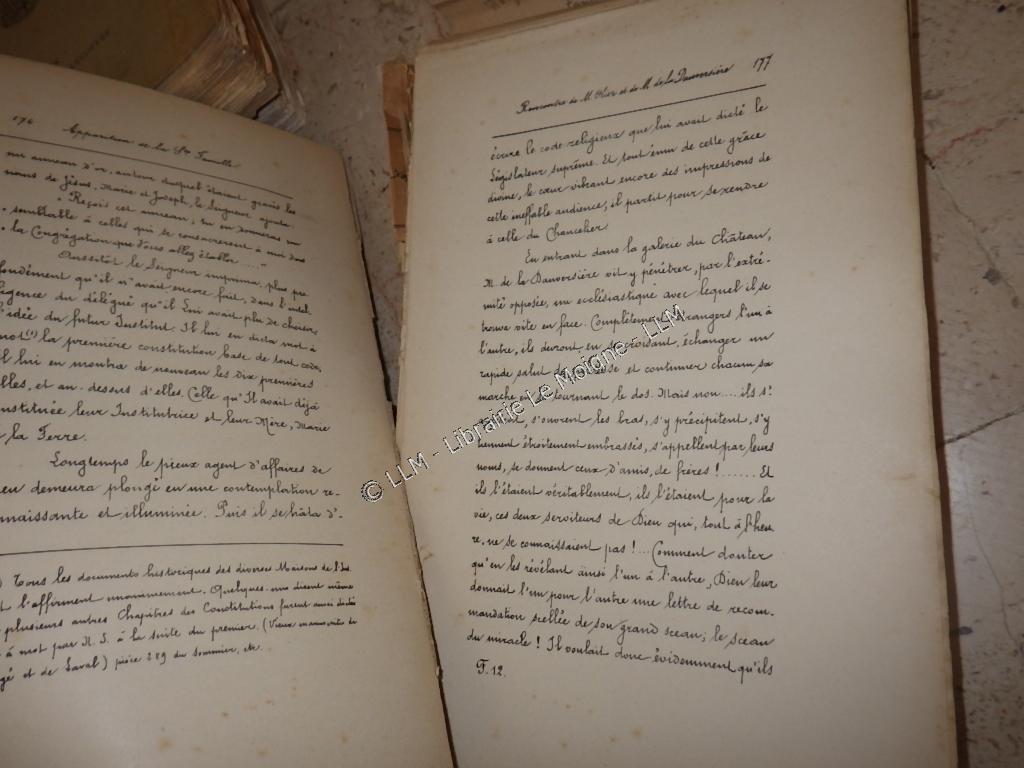 176 Apparition de la Ste Famille
un anneau d'or, autour duquel étaient gravés les
noms de Jésus, Marie et Joseph, le Seigneur ajouta:
" Reçois cet anneau; tu en donneras un
" semblable à celles qui se consacreront à moi dans
" la Congrégation que vous allez établir ...."
Aussitôt le Seigneur imprima, plus que
fondément qu'il n'avait encore fait, dans l'intel-
ligence du délégué qu'il Lui avait plu de choisir
l'idée du futur Institut. Il lui en dicta mot à
mot(1) la première constitution base de tout code,
Il lui en montra de nouveau les dix premières
elles, et au-dessus d'elles, Celle qu'Il avait déjà
nstituée leur Institutrice et leur Mère, Marie
la Terre.
Longtemps le pieux agent d'affaires de
eu demeura plongé en une contemplation re-
nnaissante et illuminée. Puis il se hâta d'-
) Tous les documents historiques des diverses Maisons de l'Ins
t l'affirment unanimement. Quelques-uns disent même
plusieurs autres Chapitres des Constitutions furent aussi dictés
à mot par N. S. à la suite du premier. (Vieux manuscrits de
gé et de Laval) pièce 289 du sommier, etc.
Rencontre de M. Olier et de M. de la Dauversière 177
écrire le code religieux que lui avait dicté le
Législateur suprême. Et tout ému de cette grâce
divine, le cœur vibrant encore des impressions de
cette ineffable audience, il partit pour se rendre
à celle du Chancelier.
En entrant dans la galerie du Château,
M. de la Dauversière vit y pénétrer, par l'extré-
mité opposée, un ecclésiastique avec lequel il se
trouve vite en face. Complètement étrangers l'un à
l'autre, ils devront en se croisant, échanger un
rapide salut et continuer chacun sa
marche en se tournant le dos. Mais non .... ils s'
s'ouvrent les bras, s'y précipitent, s'y
tiennent étroitement embrassés, s'appellent par leurs
noms, se donnent ceux d'amis, de frères ! ........ Et
ils l'étaient véritablement, ils l'étaient pour la
vie, ces deux serviteurs de Dieu qui, tout à l'heu
re, ne se connaissaient pas ! ... Comment douter
qu'en les révélant ainsi l'un à l'autre, Dieu leur
donnait l'un pour l'autre une lettre de recom-
mandation scellée de son grand sceau; le sceau
du miracle ! Il voulait donc évidemment qu'ils
T. 12.
© LLM - Librairie Le Moigne - LLM